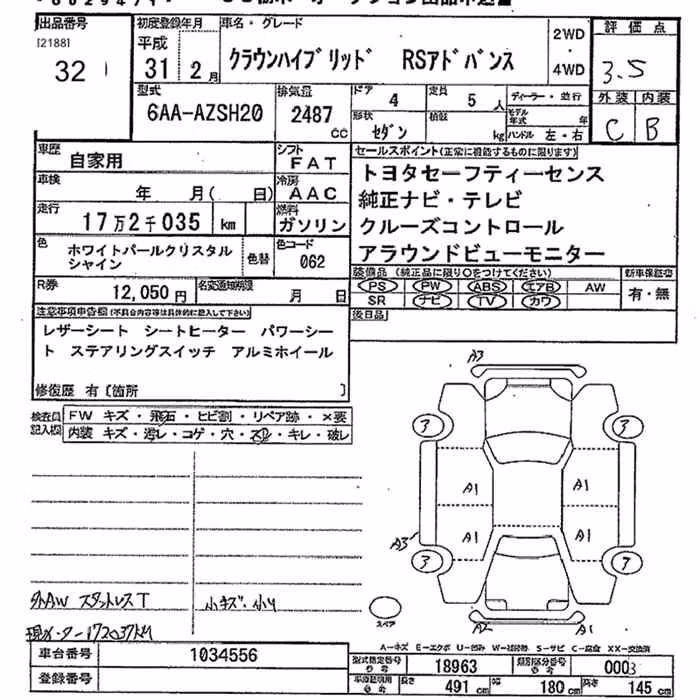 出品番号
[2188]
32
初度登録年月
平成
31 2月
車名・グレード
クラウンハイブリッド RSアドバンス
2WD
・
4WD
評価点
3.5
外装 内装
C B
型式
6AA-AZSH20
排気量
2487
cc
ドア 4
定員 5人
ディーラー・並行
形状 セダン
積載 kg
モデル年式 年
ハンドル 左・右
車歴 自家用
シフト FAT
車検 年 月( 日)
冷房 AAC
走行 17万2千035 km
燃料 ガソリン
色 ホワイトパールクリスタルシャイン
色替
色コード 062
R券 12,050円
名変通知期限 月 日
セールスポイント(正常に機能するものに限ります)
トヨタセーフティーセンス
純正ナビ・テレビ
クルーズコントロール
アラウンドビューモニター
装備品 (純正品に限り○をつけてください)
PS PW ABS エアB AW
SR ナビ TV カワ
新車保証書
有・無
後日品
注意事項申告欄(不具合内容等は具体的に記入して下さい)
レザーシート シートヒーター パワーシー
ト ステアリングスイッチ アルミホイール
修復歴 有〔箇所 〕
検査員記入欄
FW キズ・飛石・ヒビ割・リペア跡・×要
内装 キズ・汚レ・コゲ・穴・スレ・キレ・破レ
A3
3 3
A1 A1
A1 A1
A3
3 7
A2 A1
スペア
外AW スタットレスT
小キズ・小U
現メーター172037km
A-キズ E-エクボ U-凹み W-補修跡 S-サビ C-腐食 XX-交換済
車台番号 1034556
登録番号
型式指定番号 18963
類別区分番号 0003
長さ 491cm 幅 180cm 高さ 145cm